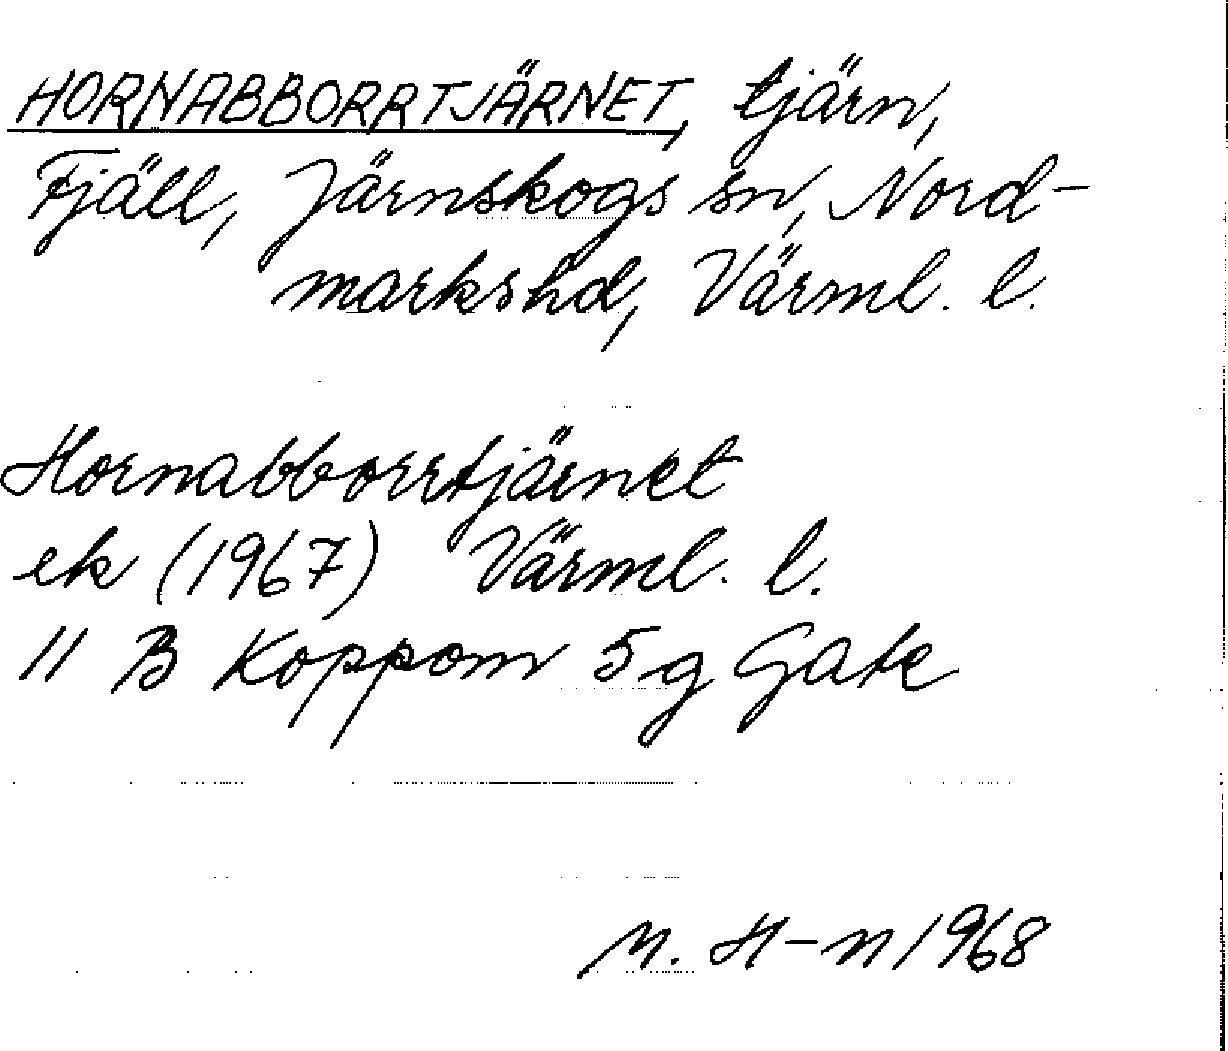 HORNABBORRTJÄRNET, tjärn,
Fjäll, Järnskogs sn, Nord-
markshd, Värml. l.
Hornabborrtjärnet
ek (1967) Värml. l.
11 B Koppom 5 g Gate
M. H-n 1968